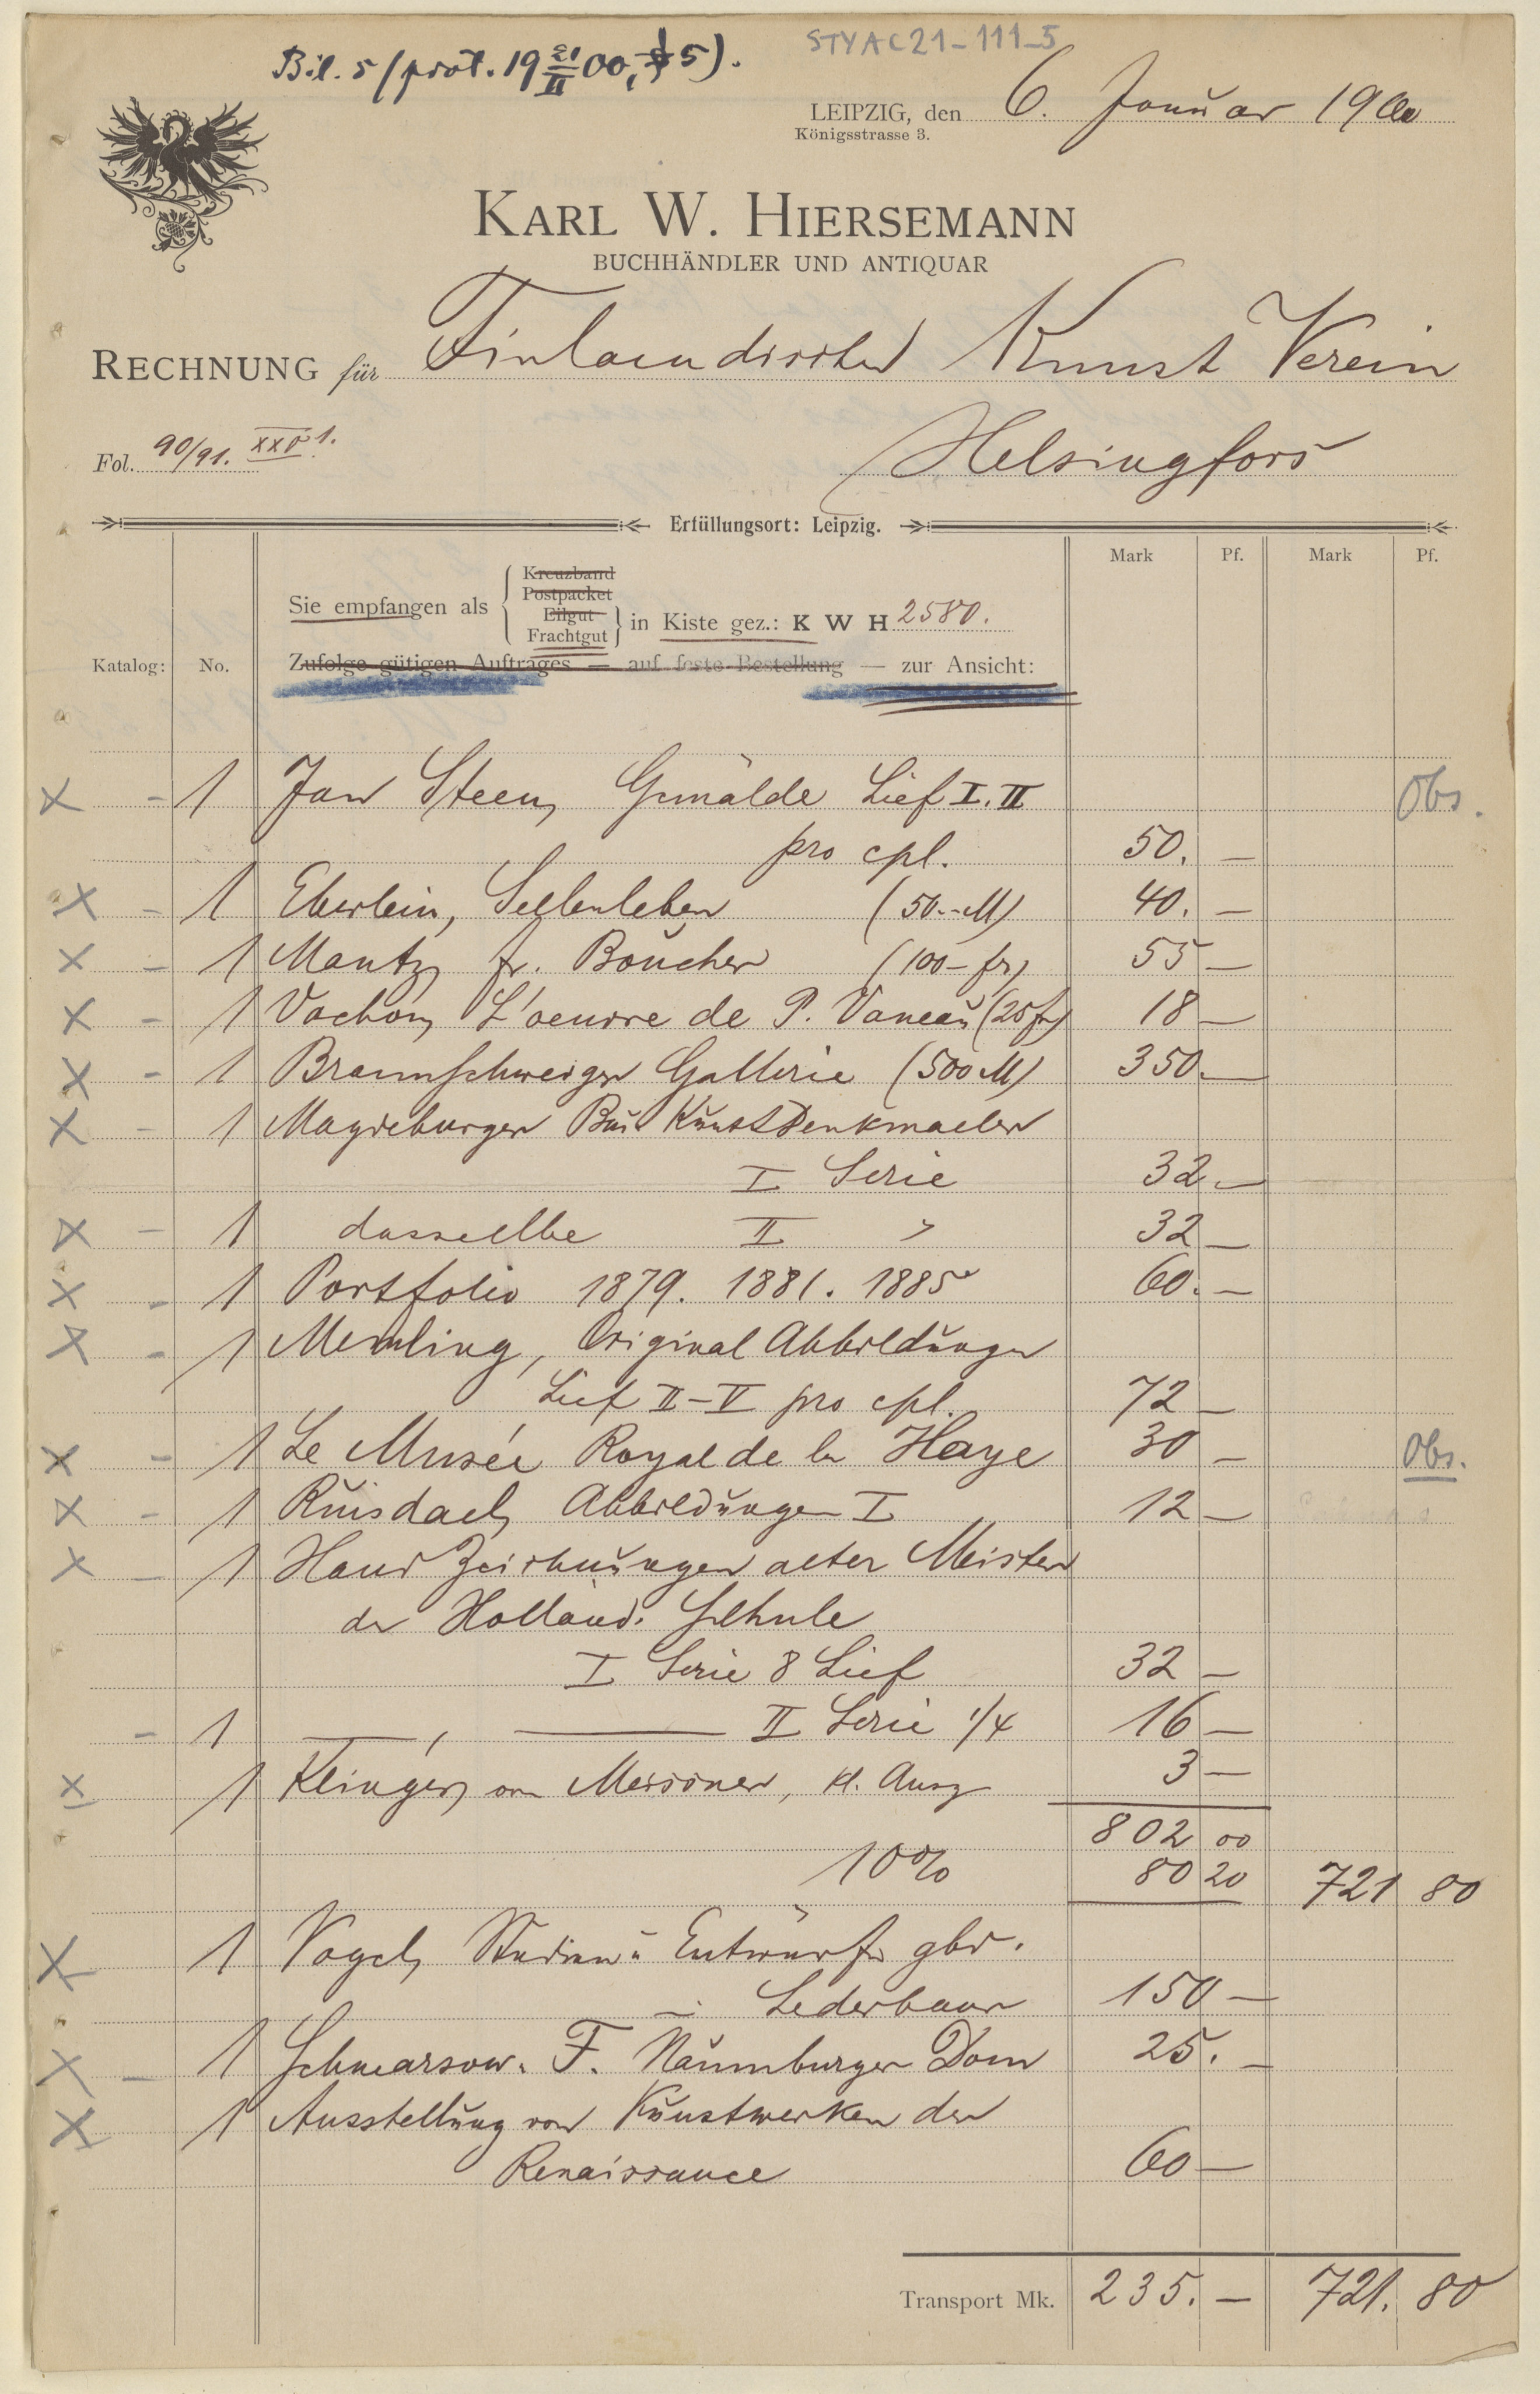 STYAC21-111-5
Bil. 5 (prot. 19 21/II 00, § 5).
LEIPZIG, den 6. Januar 1900
Königsstrasse 3.
KARL W. HIERSEMANN
BUCHHÄNDLER UND ANTIQUAR
RECHNUNG für Finlaendischen Kunst Verein
Fol. 90/91. XXV 1.
Helsingfors
Erfüllungsort: Leipzig.
Mark Pf. Mark Pf.
Kreuzband
Postpacket
Sie empfangen als Eilgut in Kiste gez.: K W H 2580.
Frachtgut
Katalog: No. Zufolge gütigen Auftrages — auf feste Bestellung — zur Ansicht:
x - 1 Jan Steen, Gemälde Lief I. II Obs.
pro cpl. 50. —
x - 1 Eberlein, Seelenleben (50.-M) 40. —
x - 1 Mantz, fr. Boucher (100 - fr) 55 —
x - 1 Vachon, L'oeuvre de P. Vaneau (25 fr) 18 —
x - 1 Braunschweiger Gallerie (500 M) 350 —
x - 1 Magdeburger Bau Kunst Denkmaeler
I Serie 32 —
x - 1 dasselbe II " 32 —
x - 1 Portfolio 1879. 1881. 1885 60. —
x - 1 Memling, Original Abbildungen
Lief II-V pro cpl. 72 —
x - 1 Le Musée Royal de la Haye 30 — Obs.
x - 1 Ruisdael, Abbildungen I 12 —
x - 1 Hand Zeichnungen alter Meister
der Holländ. Schule
I Serie 8 Lief 32 —
- 1 —, — II Serie 1/4 16 —
x 1 Klinger, von Meissner, kl. Ausg 3 —
802 00
10% 80 20 721 80
x 1 Vogel, Studien u Entwürfe gbd.
i Lederband 150 —
x - 1 Schmarsow. F. Naumburger Dom 25. —
x 1 Ausstellung von Kunstwerken der
Renaissance 60 —
Transport Mk. 235. — 721. 80